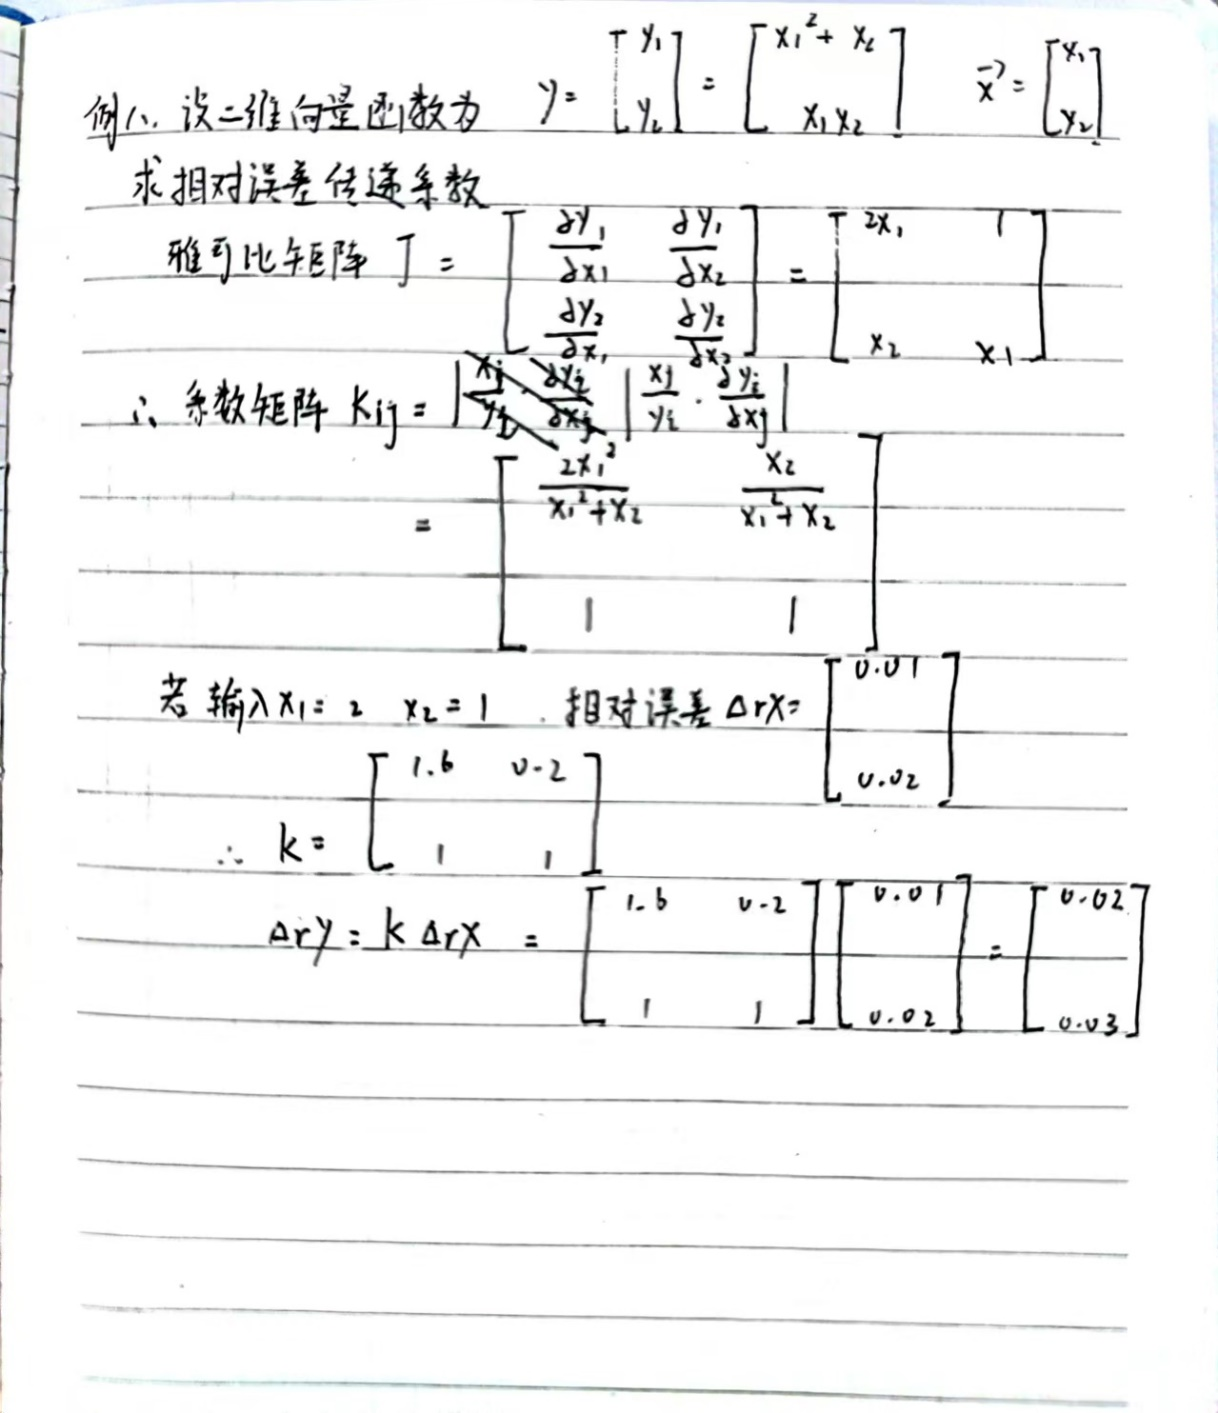 例1. 设二维向量函数为 y = [y₁; y₂] = [x₁² + x₂; x₁x₂] x⃗ = [x₁; x₂]
求相对误差传递系数
雅可比矩阵 J = [∂y₁/∂x₁ ∂y₁/∂x₂; ∂y₂/∂x₁ ∂y₂/∂x₂] = [2x₁ 1; x₂ x₁]
∴ 系数矩阵 Kij = |xj/yi · ∂yi/∂xj|
= [2x₁²/(x₁²+x₂) x₂/(x₁²+x₂); 1 1]
若输入 x₁ = 2 x₂ = 1 . 相对误差 ΔrX = [0.01; 0.02]
∴ k = [1.6 0.2; 1 1]
Δry = k ΔrX = [1.6 0.2; 1 1] [0.01; 0.02] = [0.02; 0.03]